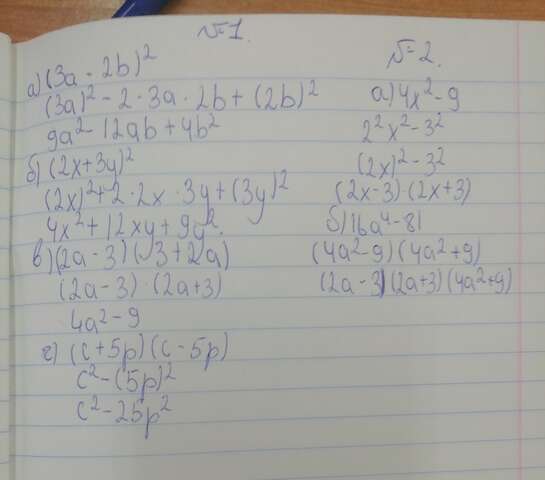 №1.
а) (3a - 2b)²
(3a)² - 2 · 3a · 2b + (2b)²
9a² - 12ab + 4b²
б) (2x+3y)²
(2x)² + 2 · 2x · 3y + (3y)²
4x² + 12xy + 9y².
в) (2a - 3) (3 + 2a)
(2a - 3) · (2a + 3)
4a² - 9
г) (c + 5p) (c - 5p)
c² - (5p)²
c² - 25p²
№2.
а) 4x² - 9
2² x² - 3²
(2x)² - 3²
(2x - 3) · (2x + 3)
б) 16a⁴ - 81
(4a² - 9) (4a² + 9)
(2a - 3) (2a + 3) (4a² + 9)